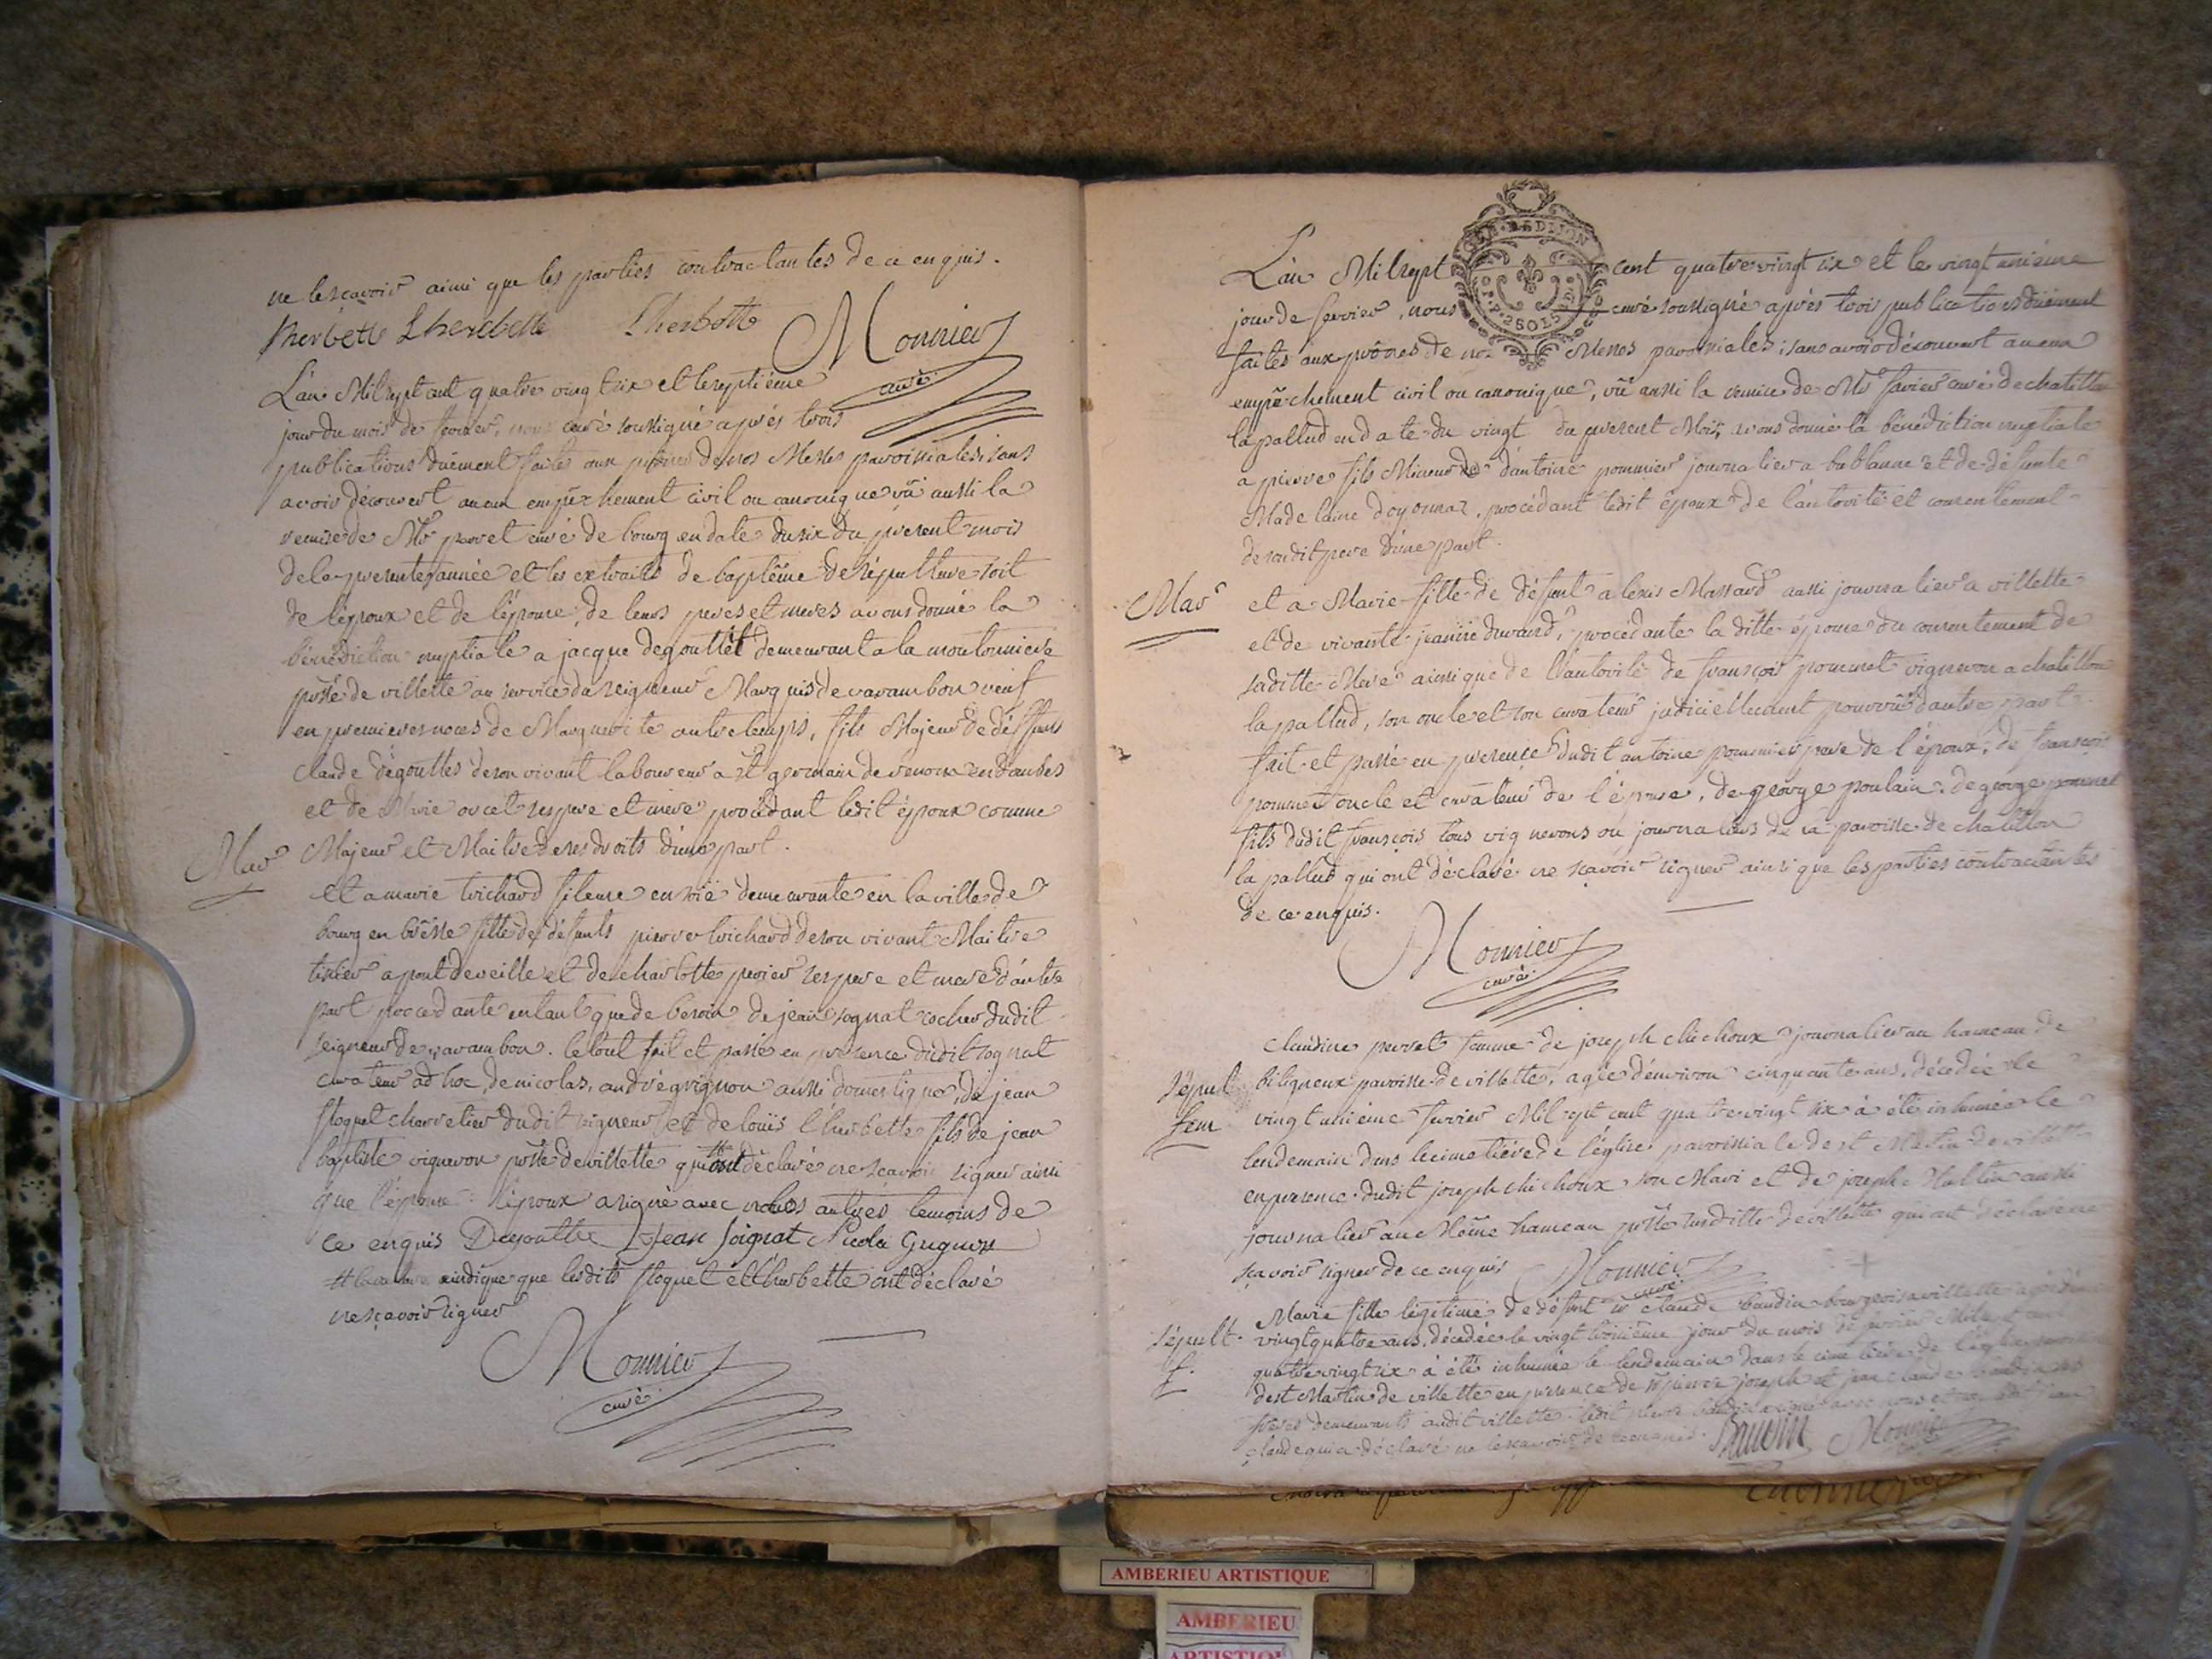 ne le sçavoir ainsi que les parties contractantes de ce enquis.
Lherbette Lherebette Lherbette Monnier
curé
L'an Mil sept cent quatre vingt six et le septiéme
jour du mois de fevrier, nous curé soussigné aprés trois
publications düement faites aux prônes de nos Messes paroissiales, sans
avoir découvert aucun empêchement civil ou canonique vû aussi la
remise de Mr curé de bourg en date du six du present mois
de la presente année et les extraits de baptême de sépulture soit
de l'époux et de l'épouse, de leurs peres et meres avons donné la
bénédiction nuptiale a jacque degouttet demeurant a la moutonniere
prsse de villette au service du seigneur Marquis de varambon veuf
en premieres noces de Marguerite autretemps, fils Majeur de déffunts
claude dégouttes de son vivant laboureur à st germain de renom en dombes
et de Marie ses pere et mere procédant ledit époux comme
Mar Majeur et Maitre de ses droits d'une part.
Et a marie trichard fileuse en soië demeurante en la ville de
bourg en bresse fille de défunts pierre trichard de son vivant Maitre
tixier a pont de veille et de charlotte perier ses pere et mere d'autre
part procedante entant que de besoin de jean sognat cocher dudit
seigneur de varambon. le tout fait et passé en presence dudit sognat
curateur ad hoc, de nicolas, andré grignon aussi domestique, de jean
floquet charretier dudit seigneur et de louis l'herbette fils de jean
baptiste vigneron prsse de villette qui ont déclaré ne sçavoir signer ainsi
que l'épouse l'époux a signé avec autres temoins de
ce enquis Degoutte Jean soignat Nicola Grignon
que lesdits floquet et l'herbette ont déclaré
ne sçavoir signer
Monnier
curé
GEN. DE DIJON
L'an Mil sept cent quatre vingt six et le vingt uniéme
jour de fevrier, nous curé soussigné aprés trois publications düement
faites aux prônes de nos Messes paroissiales, sans avoir découvert aucun
empêchement civil ou canonique, vû aussi la remise de Mr favier curé de chatillon
la pallud en date du vingt du present Mois, avons donné la bénédiction nuptiale
a pierre fils Mineur de d'antoine pommier journalier a bublanne et de défunte
Madelaine doyonnaz, procédant ledit époux de l'autorité et consentement
de sondit pere d'une part.
Marr et a Marie fille de défunt alexis Massard aussi journalier a villette
et de vivante jeanne durand, procédante la ditte épouse du consentement de
saditte Mere ainsi que de l'autorité de françois pommet vigneron a chatillon
la pallud, son oncle et son curateur judiciellement pourvu d'autre part.
fait et passé en presence dudit antoine pommier pere de l'époux, de françois
pommet oncle et curateur de l'épouse, de george poulain, de george pommet
fils dudit françois tous vignerons ou journaliers de la paroisse de chatillon
la pallud qui ont déclaré ne sçavoir signer ainsi que les parties contractantes
de ce enquis.
Monnier
curé
claudine perret femme de joseph chichoux journalier au hameau de
Sépul biligneux paroisse de villette, agée d'environ cinquante ans, décedée le
fem vingt uniéme fevrier Mil sept cent quatre vingt six à été inhumée le
lendemain dans le cimetiére de l'église paroissiale de st Martin de villette
en presence dudit joseph chichoux son Mari et de joseph aussi
journalier au Même hameau prsse susditte de villette qui ont déclaré ne
sçavoir signer de ce enquis Monnier
curé
Marie fille légitime de défunt sr claude baudin bourgeois a villette agée de
Sépult. vingt quatre ans, décedée le vingt troisiéme jour du mois de fevrier Mil sept cent
f. quatre vingt six à été inhumée le lendemain dans le cimetiére de l'église
de st Martin de villette en presence de sr pierre joseph et jean claude baudin ses
freres demeurants audit villette ledit pierre baudin a signé avec nous et non ledit jean
claude qui a déclaré ne le sçavoir de ce enquis. Baudin Monnier
curé
AMBERIEU ARTISTIQUE
AMBERIEU
ARTISTIQUE